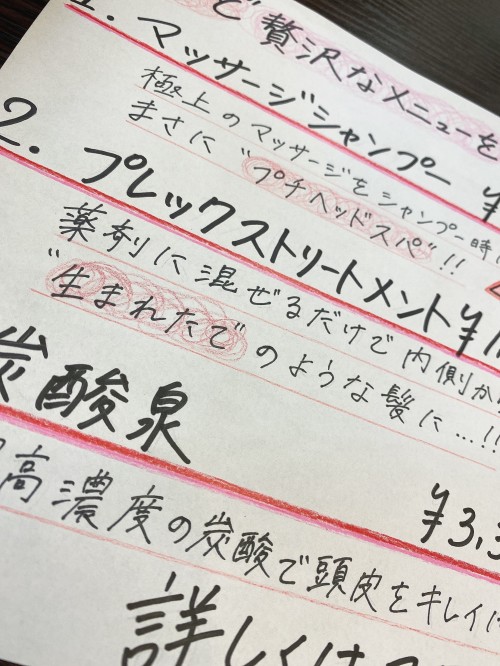 ど贅沢なメニューを
1. マッサージシャンプー ¥
極上のマッサージをシャンプー時に
まさに"プチヘッドスパ"!!
2. プレックストリートメント ¥1
薬剤に混ぜるだけで内側か
"生まれたて"のような髪に...!!
炭酸泉 ¥3,3
高濃度の炭酸で頭皮をキレイに
詳しくは